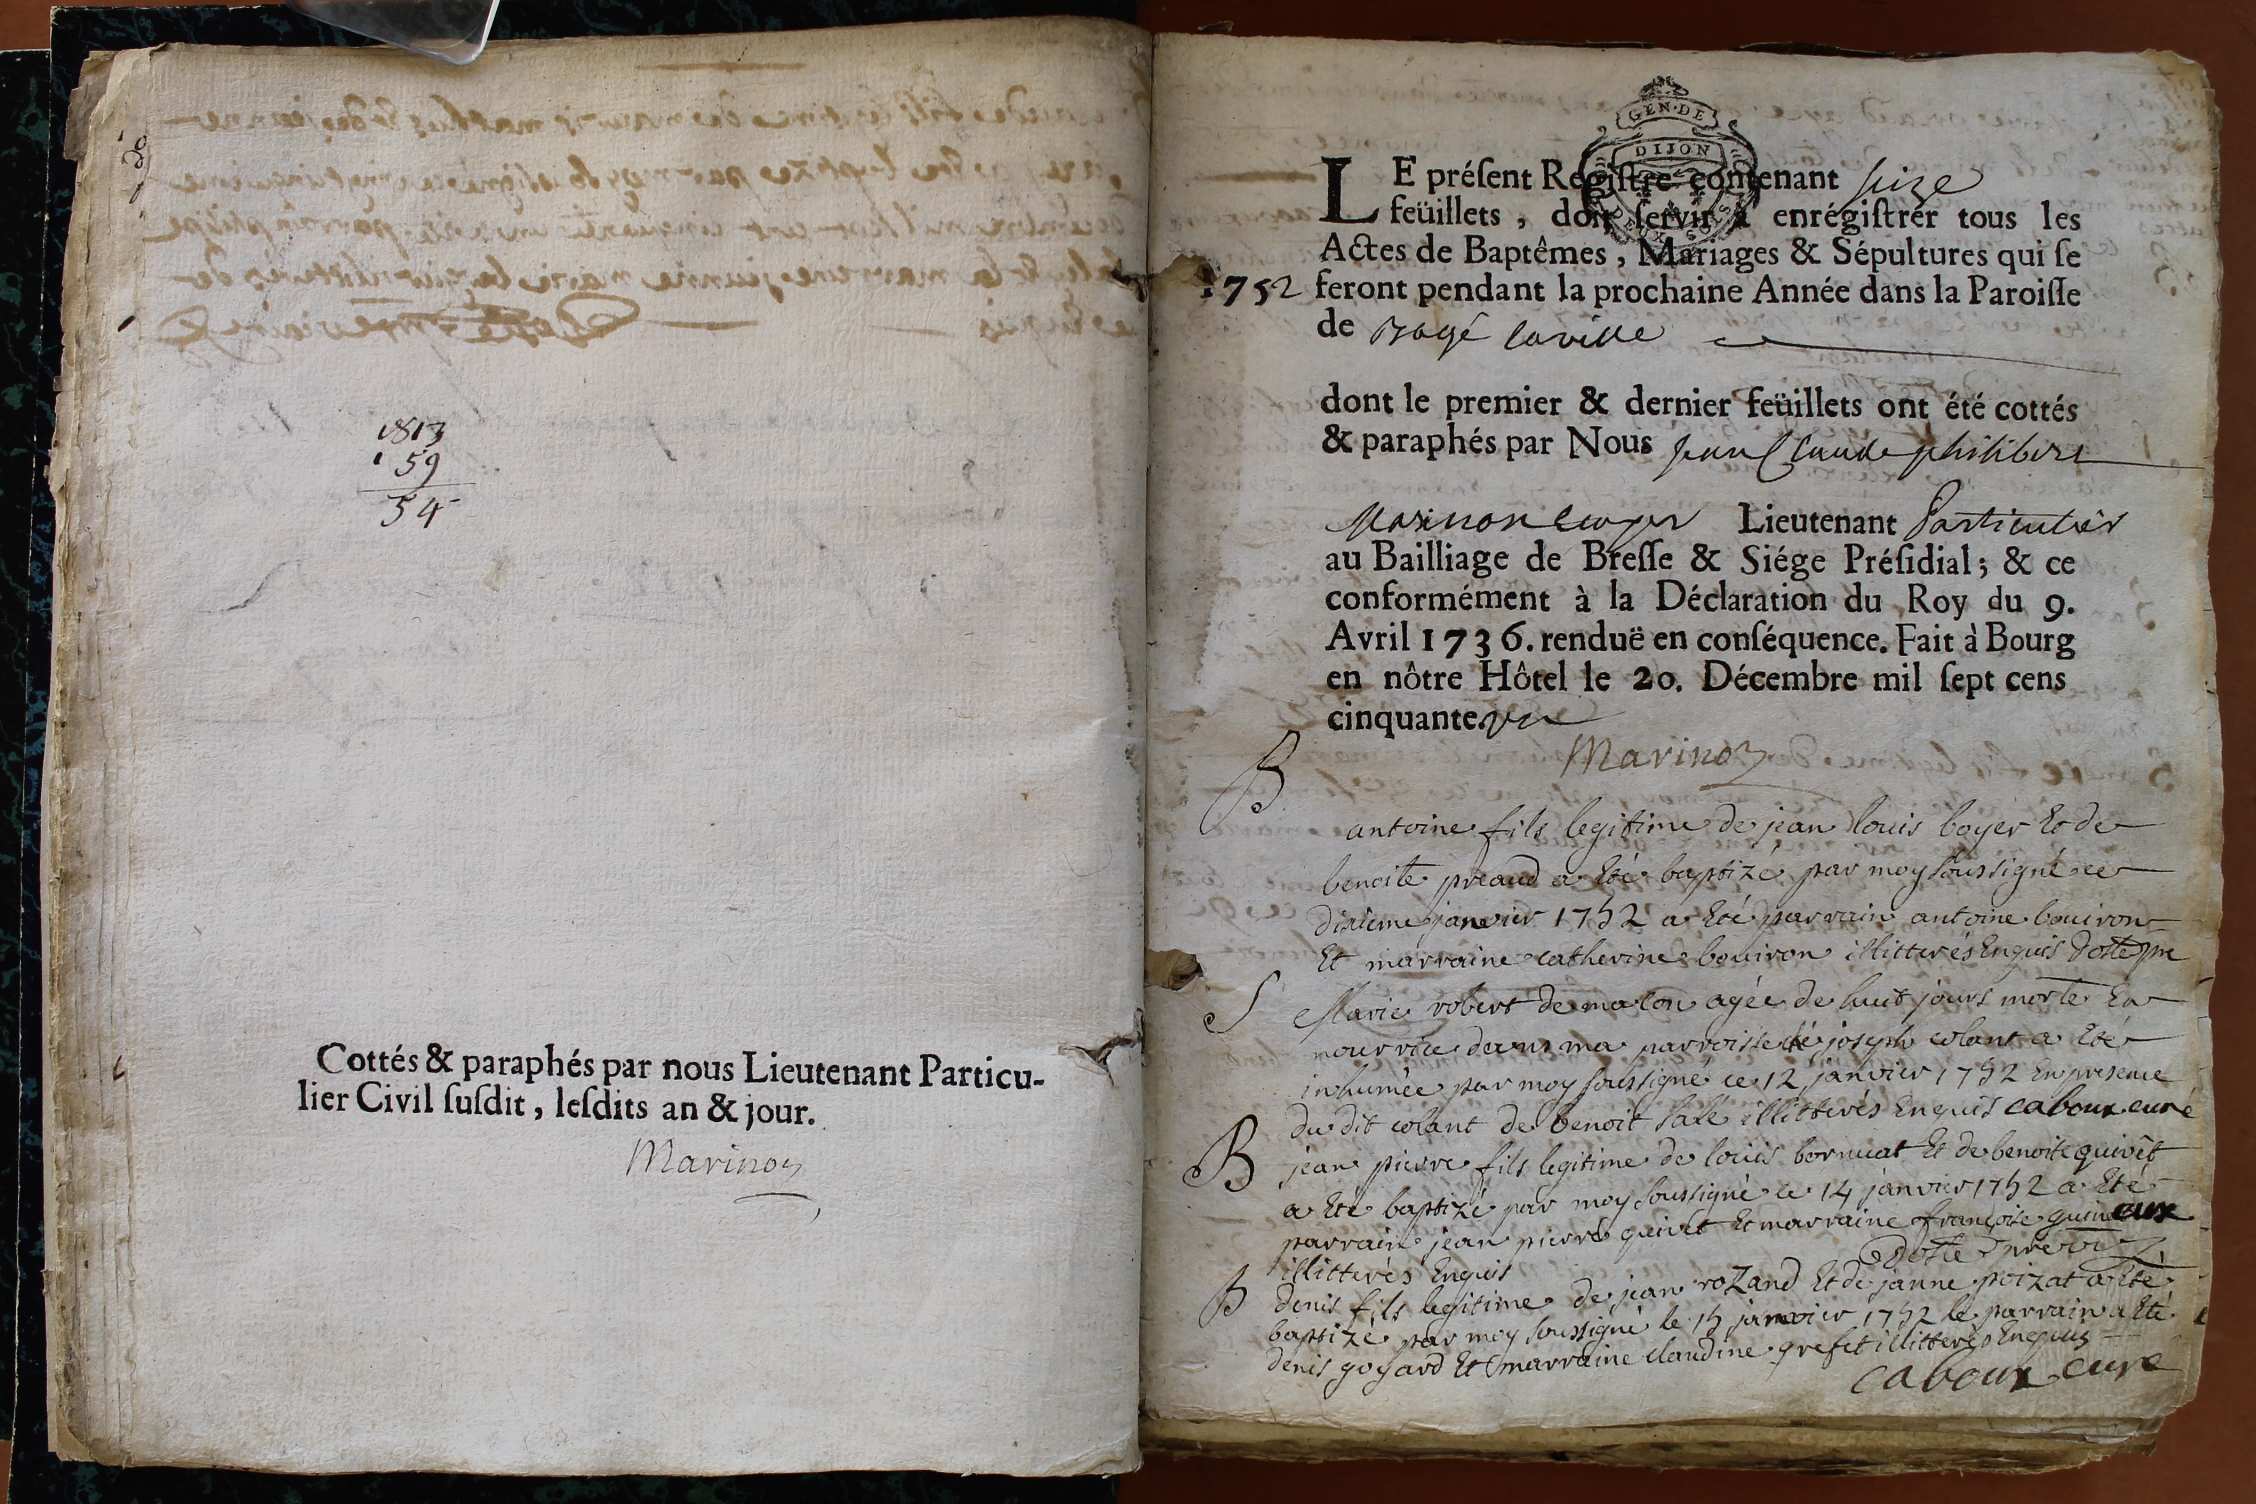 1813
159
54
Cottés & paraphés par nous Lieutenant Particu-
lier Civil ſuſdit, leſdits an & jour.
Marinon
GEN·DE
DIJON
LE préſent Regiſtre contenant seize
feüillets, doit ſervir à enrégiſtrer tous les
Actes de Baptêmes, Mariages & Sépultures qui ſe
1752 feront pendant la prochaine Année dans la Paroiſſe
de Bagé la ville
dont le premier & dernier feüillets ont été cottés
& paraphés par Nous Jean Claude philibert
Marinon Lieutenant Particulier
au Bailliage de Breſſe & Siége Préſidial; & ce
conformément à la Déclaration du Roy du 9.
Avril 1736. renduë en conſéquence. Fait à Bourg
en nôtre Hôtel le 20. Décembre mil ſept cens
cinquante un
Marinon
B
antoine fils legitime de jean louis boyer Et de
benoite preaud a Eté baptizé par moy soussigné ce
dixieme janvier 1752 a Eté parrain antoine bouiron
Et marraine catherine bouiron illitterés Enquis
S Marie robert de macon agée de huit jours morte En
nourrice dans ma parroisse joseph colant a Eté
inhumée par moy soussigné ce 12 janvier 1752 En presence
du dit colant de benoit sale illitterés Enquis caboux curé
B jean pierre fils legitime de louis bornuat Et de benoite quivêt
a Eté baptizé par moy soussigné ce 14 janvier 1752 a Eté
parrain jean pierre quivet Et marraine françoise
illitterés Enquis
B denis fils legitime de jean roZand Et de janne poizat a Eté
baptizé par moy soussigné le 15 janvier 1752 le parrain a Eté
denis goyard Et marraine claudine grefet illitterés Enquis
caboux curé